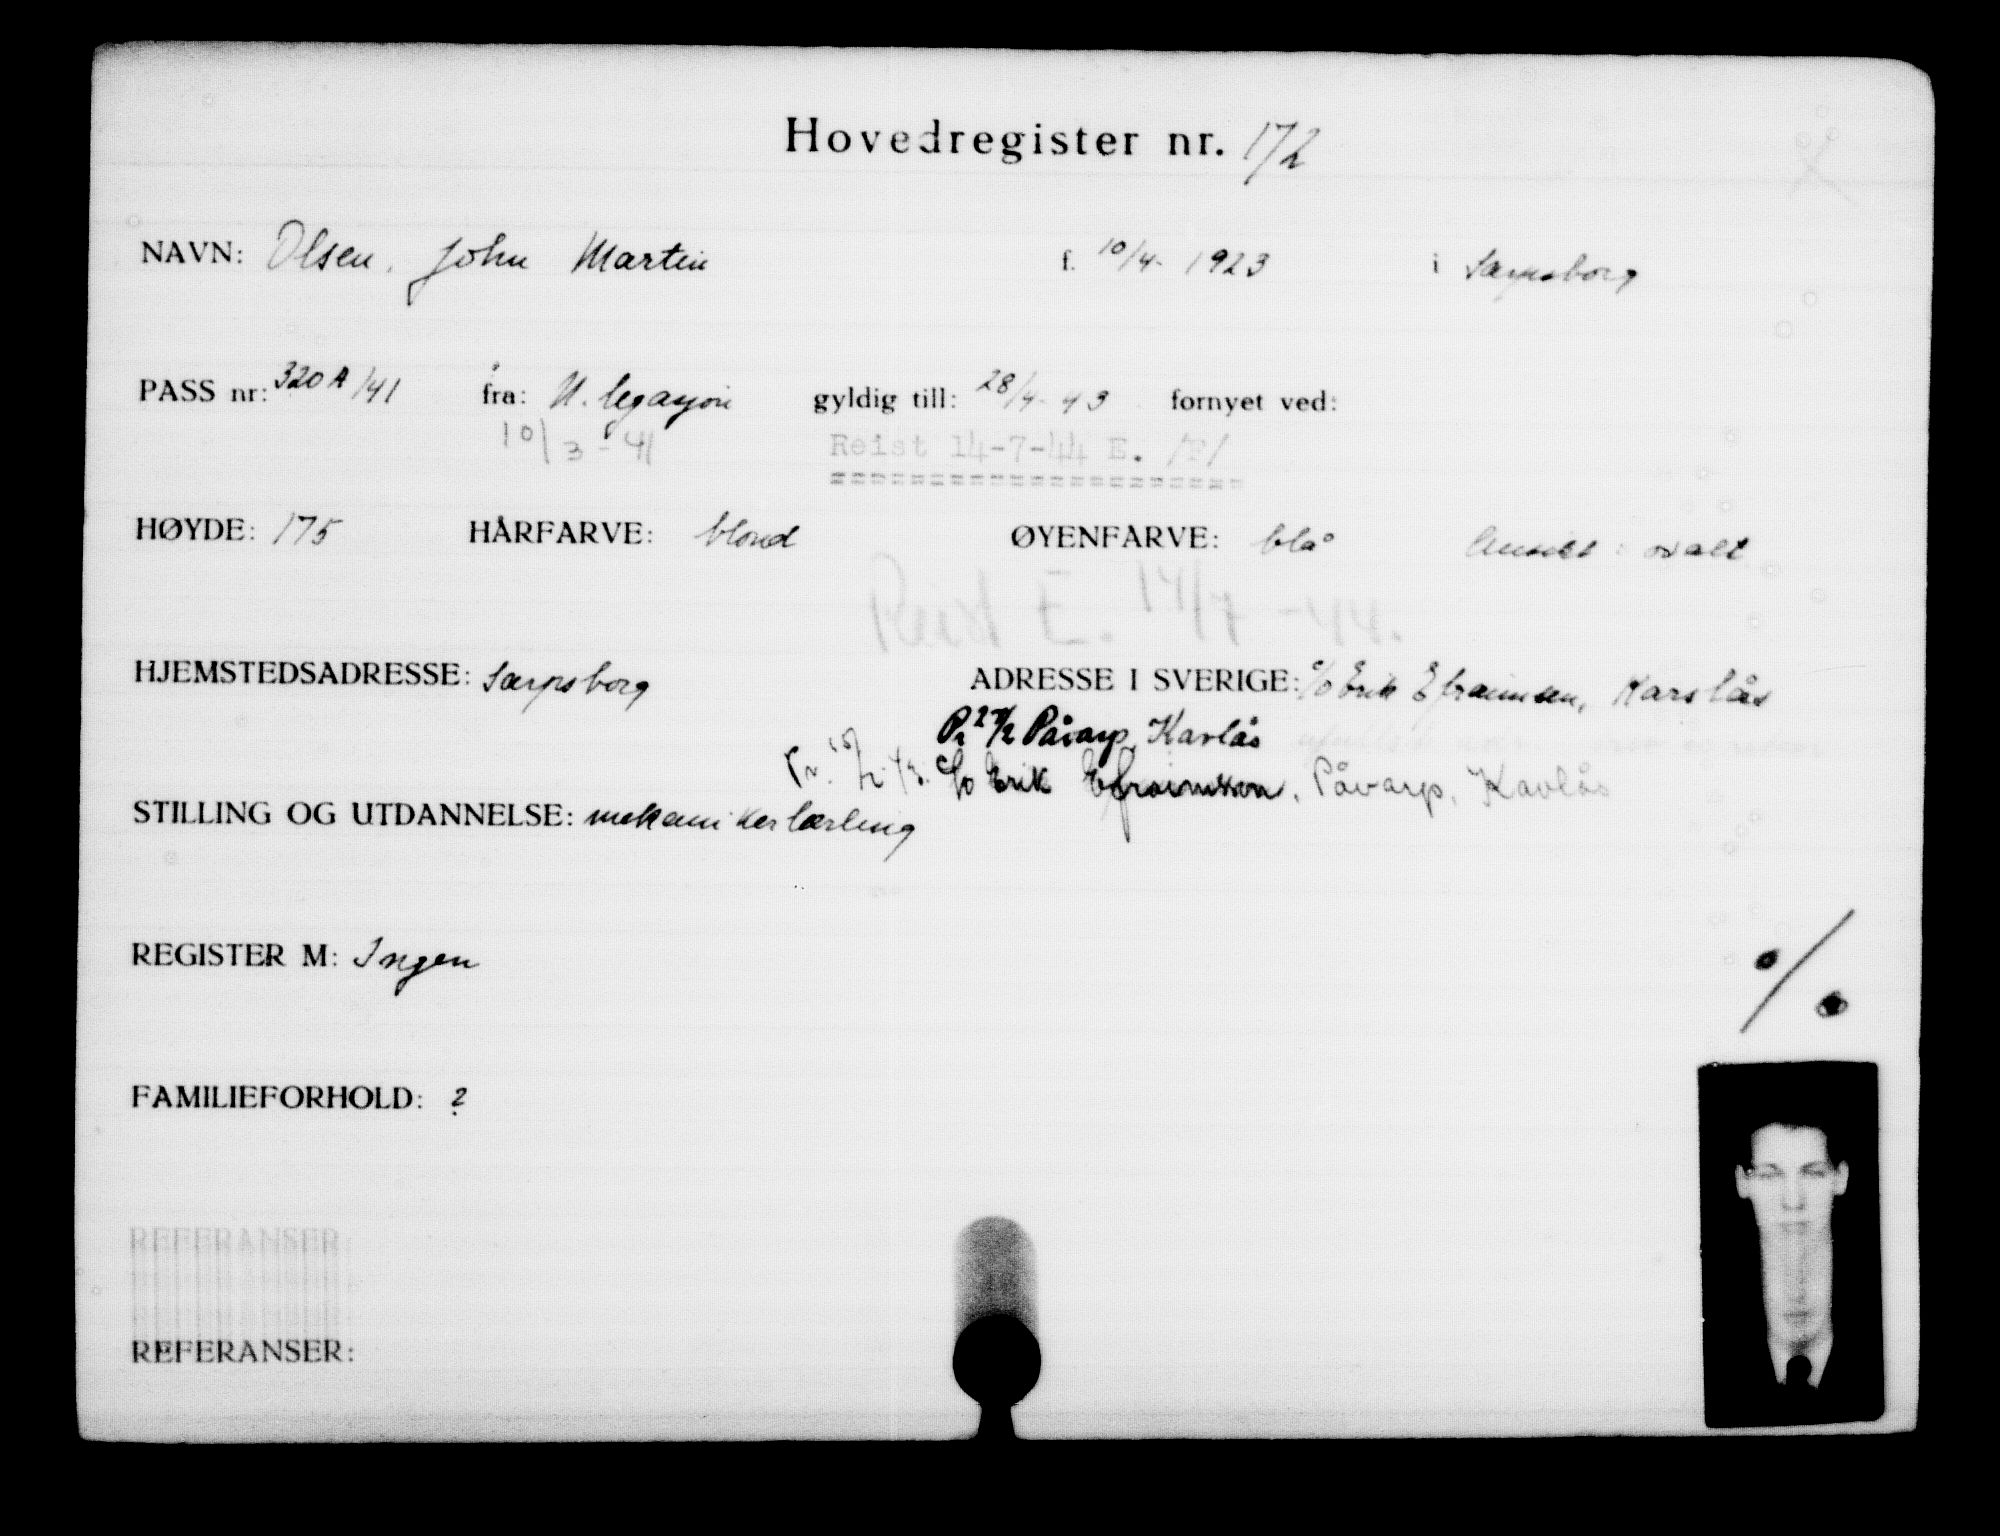 Hovedregister nr. 172
NAVN: Olsen, John Martin f. 10/4-1923 i Sarpsborg
PASS nr: 320A/41 fra: N. legasjon gyldig till: 28/4-43 fornyet ved:
10/3-41 Reist 14-7-44 E. /F/
HØYDE: 175 HÅRFARVE: blond ØYENFARVE: blå Ansikt: ovalt
Reist E. 14/7-44.
HJEMSTEDSADRESSE: Sarpsborg ADRESSE I SVERIGE: c/o Erik Efraimsen, Karslås
Påvarp, Kavlås
c/o Erik Efraimsson, Påvarp, Kavlås
STILLING OG UTDANNELSE: mekanikerlærling
REGISTER M: Ingen
%
FAMILIEFORHOLD: ?
REFERANSER
REFERANSER: